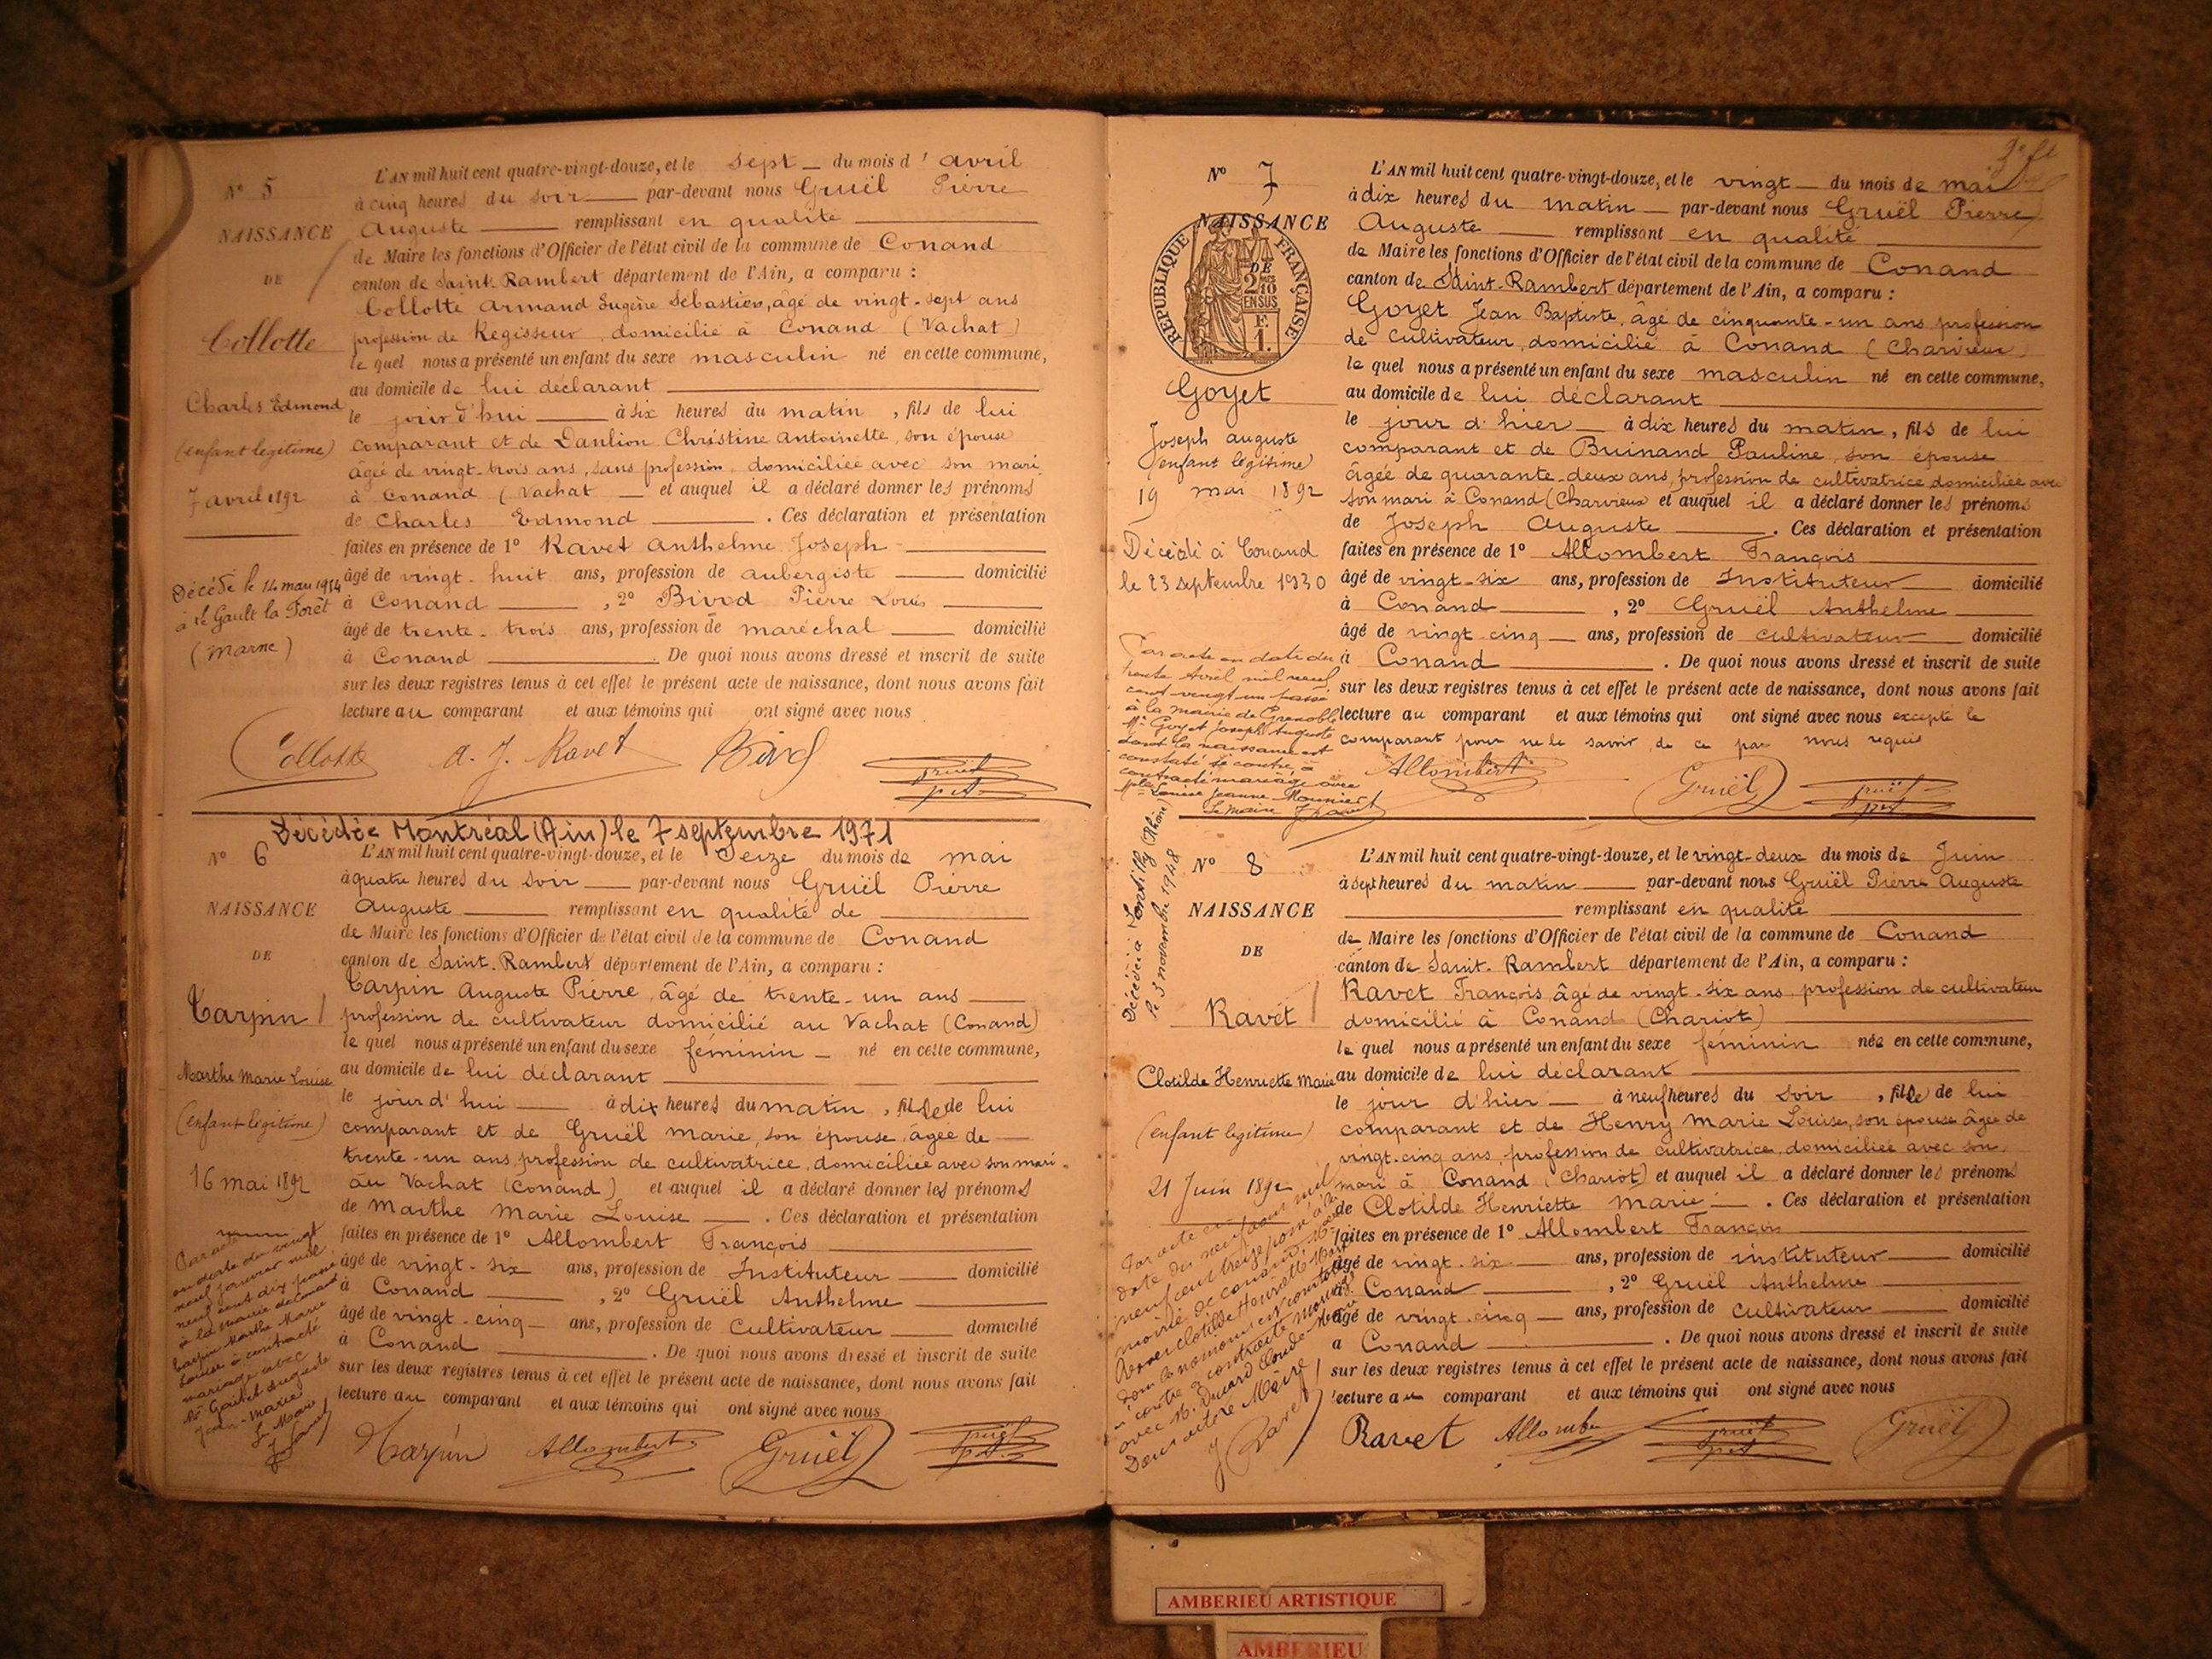 N° 5
NAISSANCE
DE
Collotte
Charles Edmond
(enfant légitime)
7 avril 1892
Décédé le 14 mai 1954
à Le Gault la Forêt
(Marne)
L'AN mil huit cent quatre-vingt-douze, et le sept du mois d'avril
à cinq heures du soir par-devant nous Gruël Pierre
Auguste remplissant en qualité
de Maire les fonctions d'Officier de l'état civil de la commune de Conand
canton de Saint-Rambert département de l'Ain, a comparu :
Collotte Armand Eugène Sébastien, âgé de vingt-sept ans
profession de Régisseur domicilié à Conand (Vachat)
le quel nous a présenté un enfant du sexe masculin né en cette commune,
au domicile de lui déclarant
le jourd'hui à six heures du matin, fils de lui
comparant et de Danlion Christine Antoinette, son épouse
âgée de vingt-trois ans, sans profession domiciliée avec son mari
à Conand (Vachat et auquel il a déclaré donner les prénoms
de Charles Edmond . Ces déclaration et présentation
faites en présence de 1° Ravet Anthelme Joseph
âgé de vingt-huit ans, profession de aubergiste domicilié
à Conand , 2° Bivod Pierre Louis
âgé de trente-trois ans, profession de maréchal domicilié
à Conand . De quoi nous avons dressé et inscrit de suite
sur les deux registres tenus à cet effet le présent acte de naissance, dont nous avons fait
lecture au comparant et aux témoins qui ont signé avec nous
Collotte A. J. Ravet Bivod Gruël
Décédée Montréal (Ain) le 7 septembre 1971
N° 6
NAISSANCE
DE
Carpin
Marthe Marie Louise
(enfant légitime)
16 mai 1892
Par acte
en date du vingt
neuf janvier mil
neuf cent dix passé
à la mairie de Conand
Carpin Marthe Marie
Louise a contracté
mariage avec
Jean-Marie
Le Maire
L'AN mil huit cent quatre-vingt-douze, et le Seize du mois de mai
à quatre heures du soir par-devant nous Gruël Pierre
Auguste remplissant en qualité de
de Maire les fonctions d'Officier de l'état civil de la commune de Conand
canton de Saint-Rambert département de l'Ain, a comparu :
Carpin Auguste Pierre, âgé de trente-un ans
profession de cultivateur domicilié au Vachat (Conand)
le quel nous a présenté un enfant du sexe féminin né en cette commune,
au domicile de lui déclarant
le jourd'hui à dix heures du matin, fille de lui
comparant et de Gruël Marie, son épouse, âgée de
trente-un ans, profession de cultivatrice, domiciliée avec son mari
au Vachat (Conand) et auquel il a déclaré donner les prénoms
de Marthe Marie Louise . Ces déclaration et présentation
faites en présence de 1° Allombert François
âgé de vingt-six ans, profession de Instituteur domicilié
à Conand , 2° Gruël Anthelme
âgé de vingt-cinq ans, profession de Cultivateur domicilié
à Conand . De quoi nous avons dressé et inscrit de suite
sur les deux registres tenus à cet effet le présent acte de naissance, dont nous avons fait
lecture au comparant et aux témoins qui ont signé avec nous
Carpin Allombert Gruël Gruël
N° 7
NAISSANCE
DE
REPUBLIQUE FRANÇAISE
2/10 EN SUS
1.
Goyet
Joseph Auguste
(enfant légitime)
19 mai 1892
Décédé à Conand
le 23 septembre 1930
Par acte en date du
trente Avril mil neuf
cent vingt un passé
à la mairie de Grenoble
Mr Goyet Joseph Auguste
dont la naissance est
constaté ci contre, a
contracté mariage avec
Mlle Louise Jeanne Mounier
Le Maire J Ravet
L'AN mil huit cent quatre-vingt-douze, et le vingt du mois de mai
à dix heures du matin par-devant nous Gruël Pierre
Auguste remplissant en qualité
de Maire les fonctions d'Officier de l'état civil de la commune de Conand
canton de Saint-Rambert département de l'Ain, a comparu :
Goyet Jean Baptiste, âgé de cinquante-un ans profession
de cultivateur, domicilié à Conand (Charvieux
le quel nous a présenté un enfant du sexe masculin né en cette commune,
au domicile de lui déclarant
le jour d'hier à dix heures du matin, fils de lui
comparant et de Buinand Pauline, son épouse
âgée de quarante-deux ans, profession de cultivatrice domiciliée avec
son mari à Conand (Charvieux et auquel il a déclaré donner les prénoms
de Joseph Auguste . Ces déclaration et présentation
faites en présence de 1° Allombert François
âgé de vingt-six ans, profession de Instituteur domicilié
à Conand , 2° Gruël Anthelme
âgé de vingt cinq ans, profession de cultivateur domicilié
à Conand . De quoi nous avons dressé et inscrit de suite
sur les deux registres tenus à cet effet le présent acte de naissance, dont nous avons fait
lecture au comparant et aux témoins qui ont signé avec nous excepté le
comparant pour ne le savoir, de ce par nous requis
Allombert Gruël Gruël
Décédée à Lentilly (Rhône)
le 3 novembre 1948
N° 8
NAISSANCE
DE
Ravet
Clotilde Henriette Marie
(enfant légitime)
21 Juin 1892
Par acte en
date du neuf août mil
neuf cent treize passé à la
mairie de Conand
Ravet Clotilde Henriette Marie
a contracté mariage
avec M.
Le Maire
J Ravet
L'AN mil huit cent quatre-vingt-douze, et le vingt-deux du mois de Juin
à sept heures du matin par-devant nous Gruël Pierre Auguste
remplissant en qualité
de Maire les fonctions d'Officier de l'état civil de la commune de Conand
canton de Saint-Rambert département de l'Ain, a comparu :
Ravet François, âgé de vingt-six ans, profession de cultivateur
domicilié à Conand (Chariot)
le quel nous a présenté un enfant du sexe féminin née en cette commune,
au domicile de lui déclarant
le jour d'hier à neuf heures du soir, fille de lui
comparant et de Henry Marie Louise, son épouse âgée de
vingt-cinq ans, profession de cultivatrice, domiciliée avec son
mari à Conand (Chariot) et auquel il a déclaré donner les prénoms
de Clotilde Henriette Marie . Ces déclaration et présentation
faites en présence de 1° Allombert François
âgé de vingt-six ans, profession de instituteur domicilié
à Conand , 2° Gruël Anthelme
âgé de vingt-cinq ans, profession de cultivateur domicilié
à Conand . De quoi nous avons dressé et inscrit de suite
sur les deux registres tenus à cet effet le présent acte de naissance, dont nous avons fait
lecture au comparant et aux témoins qui ont signé avec nous
Ravet Allombert Gruël Gruël
AMBERIEU ARTISTIQUE
AMBERIEU